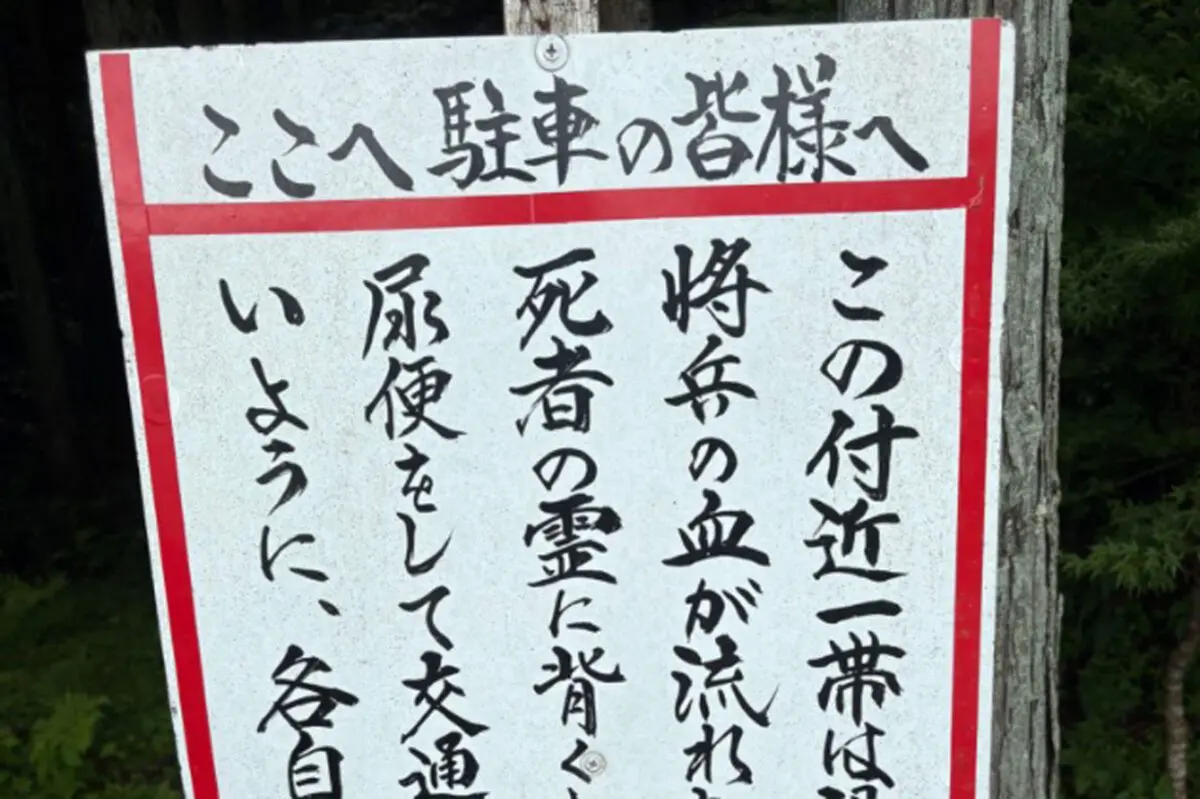 ここへ駐車の皆様へ
この付近一帯は
将兵の血が流れ
死者の霊に背く
尿便をして交通
いように、各自